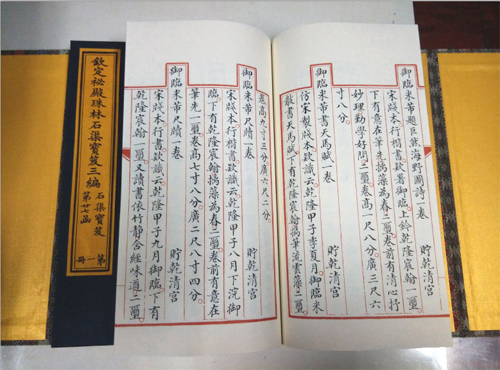 欽定祕殿珠林石渠寶笈三編
石渠寶笈
第廿七函
第一冊
御臨米芾題巨然海野圖詩一卷
貯乾清宮
宋牋本行楷書款署御臨上鈐乾隆宸翰一璽
下有意在筆先摛藻為春二璽卷前有清心抒
妙理勤學好問二璽卷高一尺八分廣三尺六
寸八分
御臨米芾書天馬賦一卷
貯乾清宮
仿宋製牋本款識云乾隆甲子季夏月御臨米
書天馬賦下有乾隆宸翰筆流雲藻二璽
卷高九寸三分廣六尺二分
御臨米芾尺牘一卷
貯乾清宮
宋牋本行楷書款識云乾隆甲子八月下浣御
臨下有乾隆宸翰摛藻為春二璽卷前有意在
筆先一璽卷高七寸八分廣二尺八寸四分
御臨米芾尺牘一卷
貯乾清宮
宋牋本行書款識云乾隆甲子九月御臨下有
乾隆宸翰一璽又讀書依竹靜含經味道二璽